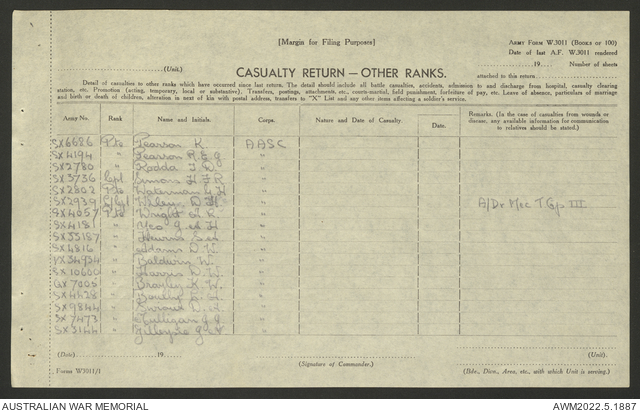 [Margin for Filing Purposes]
ARMY FORM W.3011 (BOOKS OF 100)
Date of last A.F. W.3011 rendered
19 Number of sheets
(Unit.)
CASUALTY RETURN — OTHER RANKS.
attached to this return
Detail of casualties to other ranks which have occurred since last return. The detail should include all battle casualties, accidents, admission to and discharge from hospital, casualty clearing
station, etc. Promotion (acting, temporary, local or substantive). Transfers, postings, attachments, etc., courts-martial, field punishment, forfeiture of pay, etc. Leave of absence, particulars of marriage
and birth or death of children, alteration in next of kin with postal address, transfers to "X" List and any other items affecting a soldier's service.
Army No. Rank Name and Initials. Corps. Nature and Date of Casualty. Date. Remarks. (In the case of casualties from wounds or disease, any available information for communication to relatives should be stated.)
SX6686 Pte Pearson R AASC
SX4194 " Pearson R.E.G "
SX2780 " Rodda J D "
SX3736 Cpl Simons H J R "
SX2802 Pte Waterman G H "
SX2939 Wiley D H " A/Dr Mec T Gp III
4057 Pte Wright "
SX4181 " Yeo "
SX33187 " Harris "
SX4816 " Adams D.V. "
VX34934 " Baldwin W. "
SX10600 " Harris D.W. "
QX7005 " Brayley K.W. "
SX4828 " "
SX9844 " "
SX7473 " Mulligan "
SX3144 " Gillespie "
(Date) 19
(Signature of Commander.)
(Unit).
Forms W3011/1
(Bde., Divn., Area, etc., with which Unit is serving).
AUSTRALIAN WAR MEMORIAL
AWM2022.5.1887